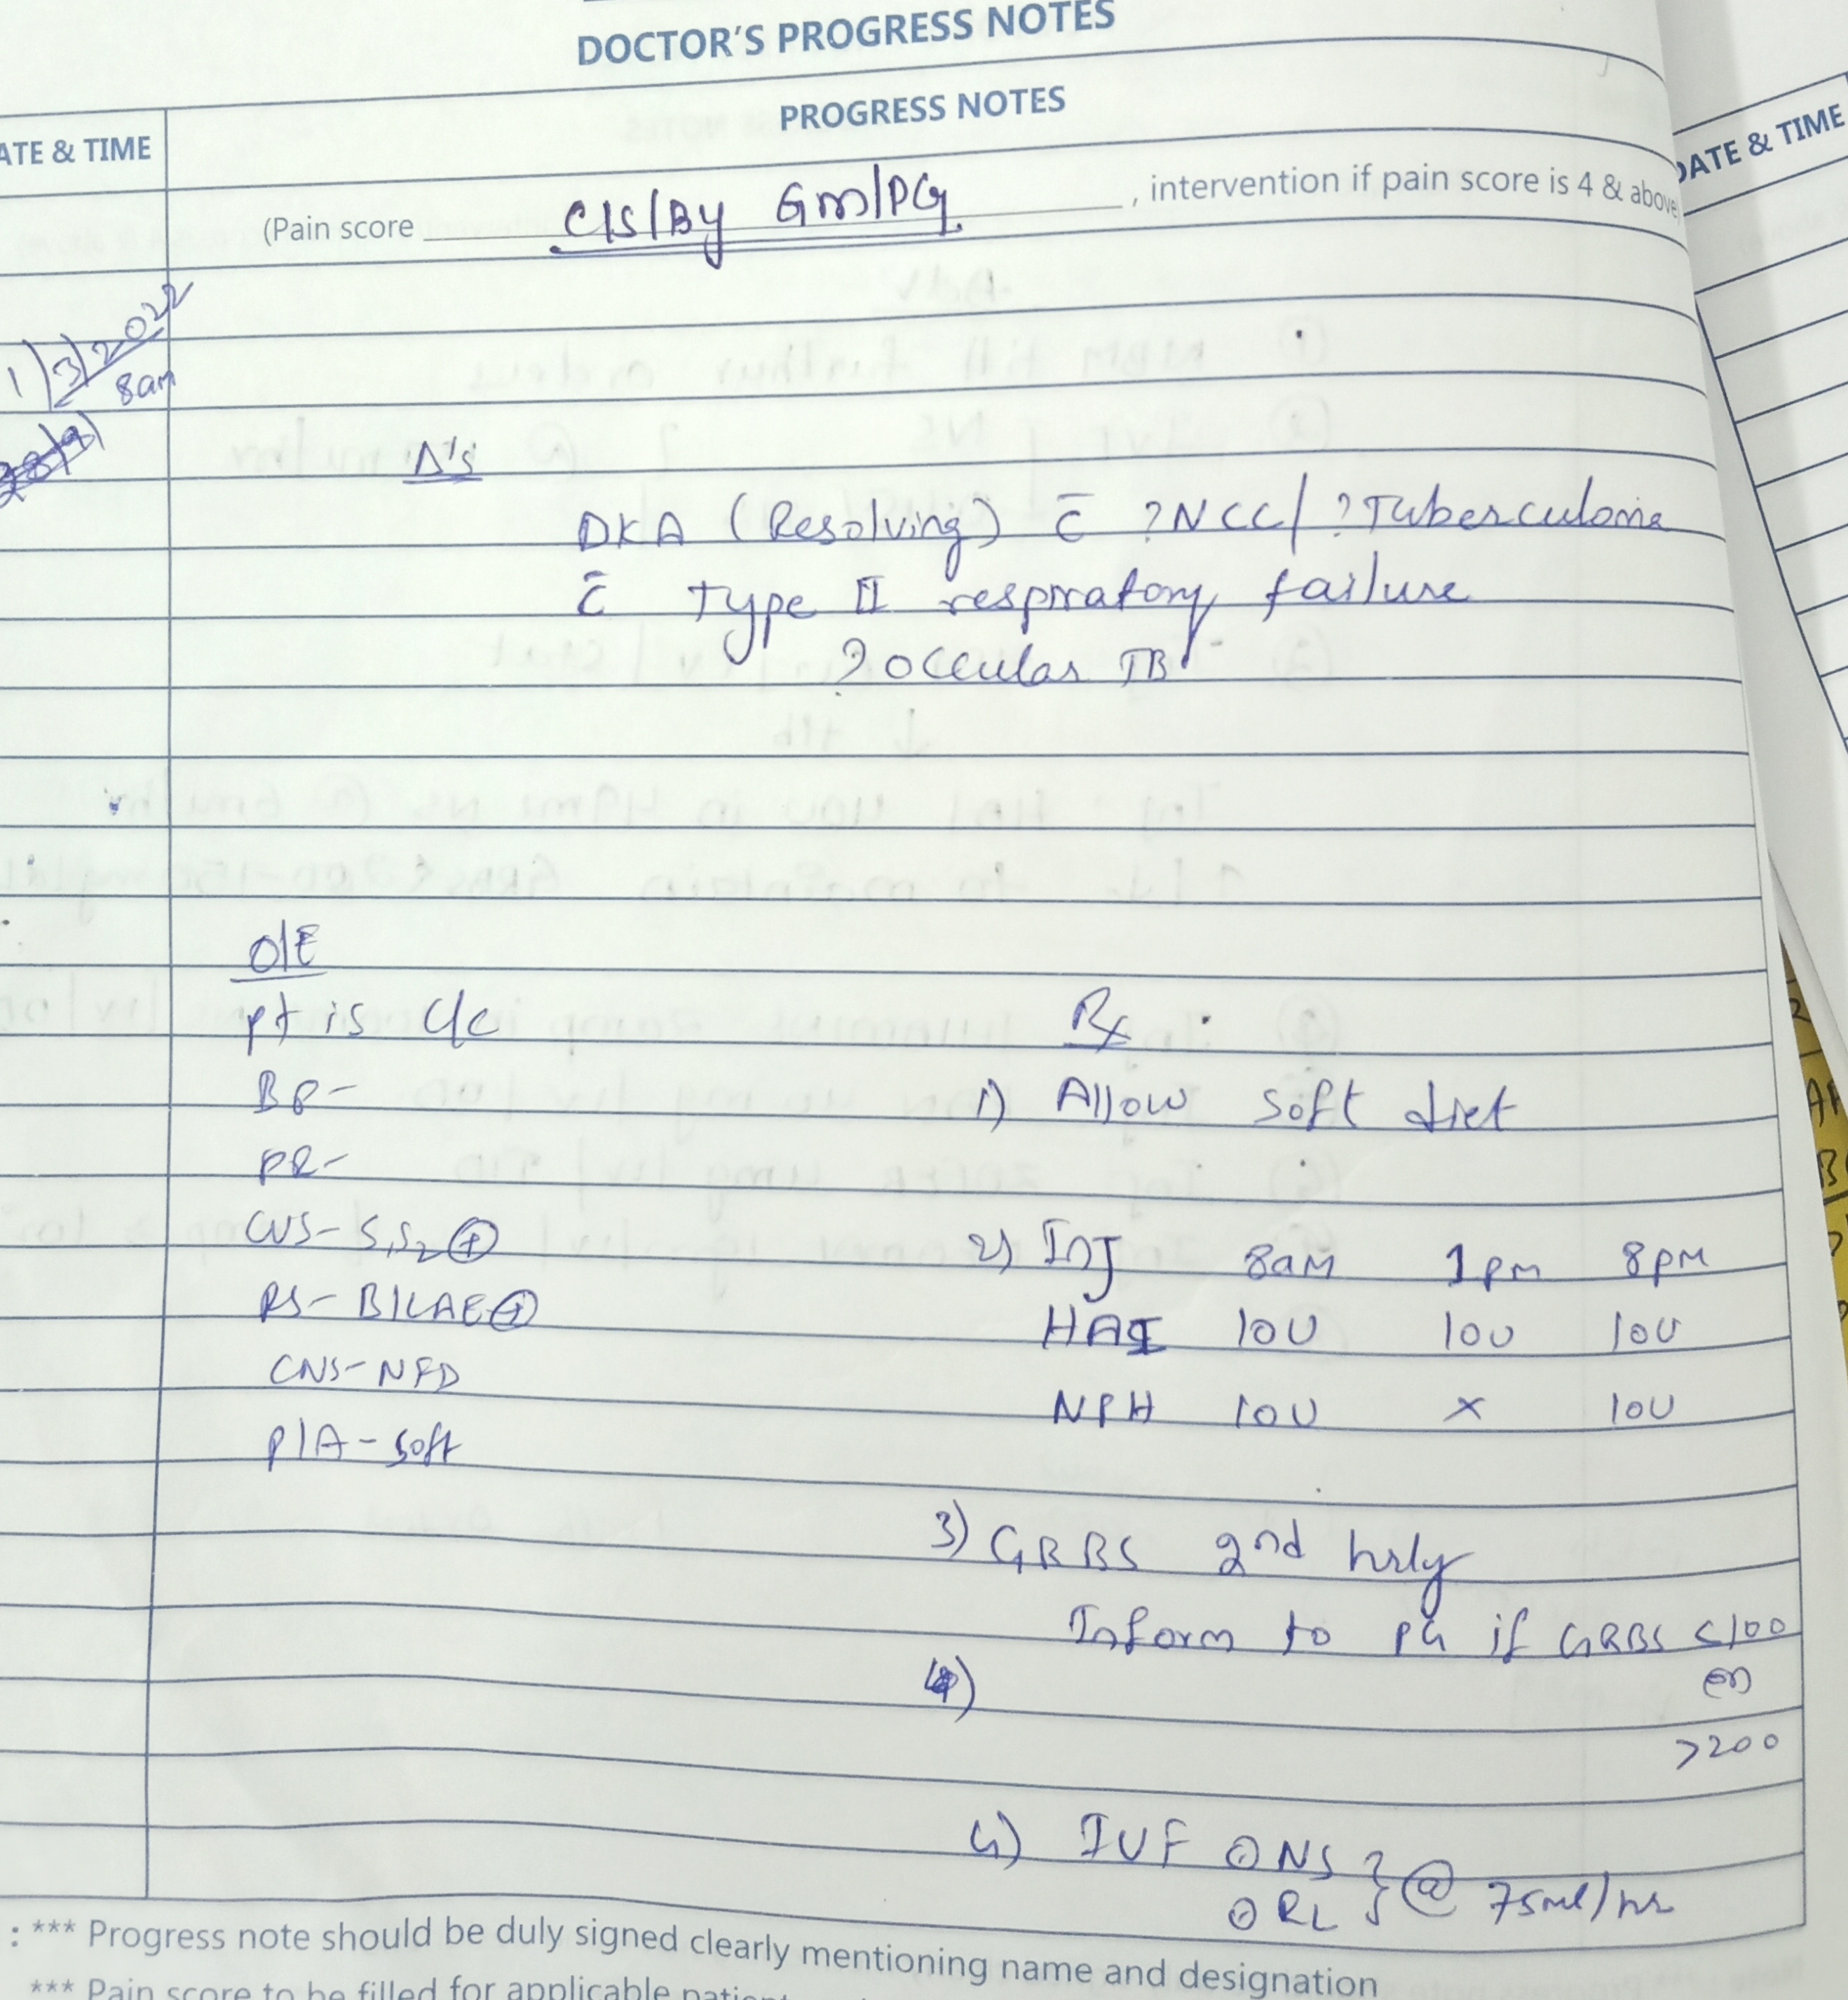 DOCTOR'S PROGRESS NOTES
ATE & TIME
PROGRESS NOTES
DATE & TIME
(Pain score C/S/By GM/PG, intervention if pain score is 4 & above
1/3/2022
8am
Δ's
DKA (Resolving) c̄ ?NCC/ ?Tuberculoma
c̄ Type II respiratory failure
? Occular TB
O/E
pt is c/c
BP-
PR-
CVS- S1S2 ⊕
RS- B/LAE ⊕
CNS- NFD
P/A- soft
Rx
1) Allow soft diet
2) INJ 8am 1pm 8pm
HAI 10U 10U 10U
NPH 10U x 10U
3) GRBS 2nd hrly
Inform to PG if GRBS <100
(or)
>200
4)
4) IVF ⊙ NS } @ 75ml/hr
⊙ RL
: *** Progress note should be duly signed clearly mentioning name and designation
*** Pain score to be filled for applicable